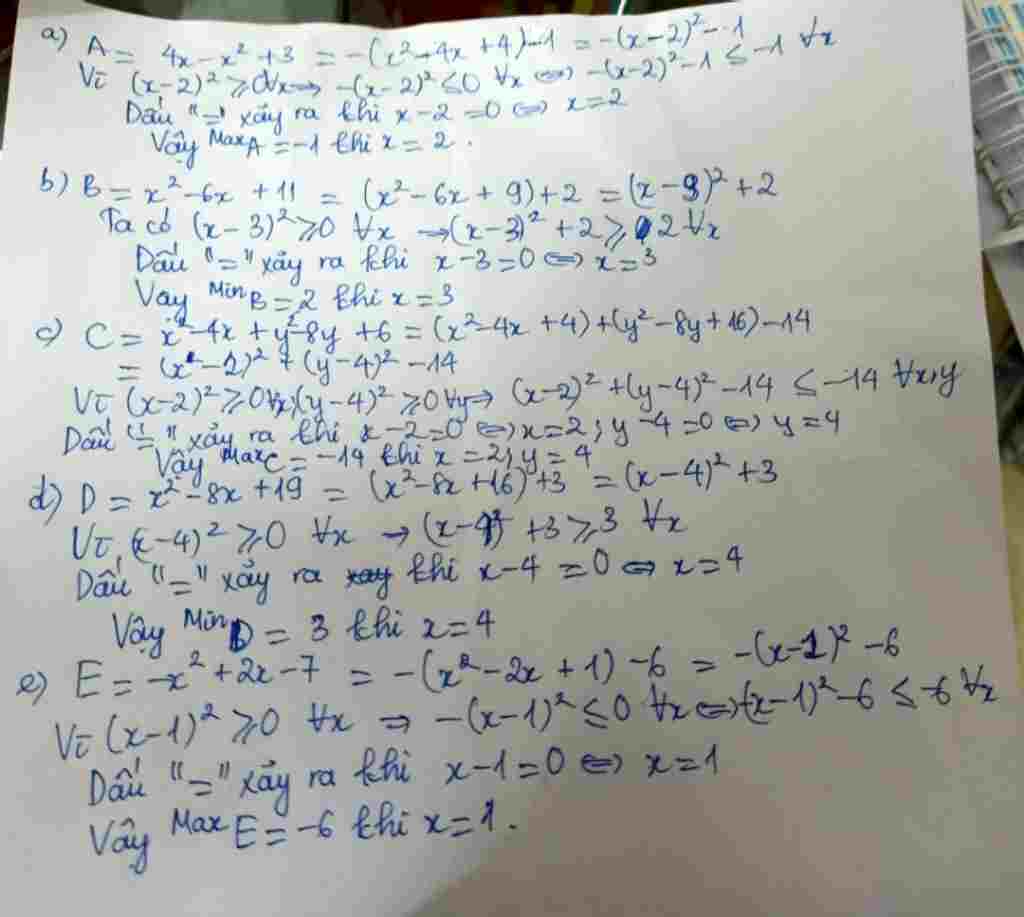 a) A = 4x - x² + 3 = -(x² - 4x + 4) - 1 = -(x-2)² - 1
Vì (x-2)² ≥ 0 ∀x ⇒ -(x-2)² ≤ 0 ∀x ⇔ -(x-2)² - 1 ≤ -1 ∀x
Dấu "=" xảy ra khi x - 2 = 0 ⇔ x = 2
Vậy Max A = -1 khi x = 2.
b) B = x² - 6x + 11 = (x² - 6x + 9) + 2 = (x - 3)² + 2
Ta có (x - 3)² ≥ 0 ∀x → (x - 3)² + 2 ≥ 2 ∀x
Dấu "=" xảy ra khi x - 3 = 0 ⇔ x = 3
Vay Min B = 2 khi x = 3
c) C = x² - 4x + y² - 8y + 6 = (x² - 4x + 4) + (y² - 8y + 16) - 14
= (x - 2)² + (y - 4)² - 14
Vì (x-2)² ≥ 0 ∀x; (y-4)² ≥ 0 ∀y → (x-2)² + (y-4)² - 14 ≤ -14 ∀x,y
Dấu "=" xảy ra khi x - 2 = 0 ⇔ x = 2; y - 4 = 0 ⇔ y = 4
Vậy Max C = -14 khi x = 2; y = 4
d) D = x² - 8x + 19 = (x² - 8x + 16) + 3 = (x - 4)² + 3
Vì (x - 4)² ≥ 0 ∀x → (x - 4)² + 3 ≥ 3 ∀x
Dấu "=" xảy ra khi x - 4 = 0 ⇔ x = 4
Vậy Min D = 3 khi x = 4
e) E = -x² + 2x - 7 = -(x² - 2x + 1) - 6 = -(x - 1)² - 6
Vì (x - 1)² ≥ 0 ∀x ⇒ -(x - 1)² ≤ 0 ∀x ⇔ -(x - 1)² - 6 ≤ -6 ∀x
Dấu "=" xảy ra khi x - 1 = 0 ⇔ x = 1
Vậy Max E = -6 khi x = 1.